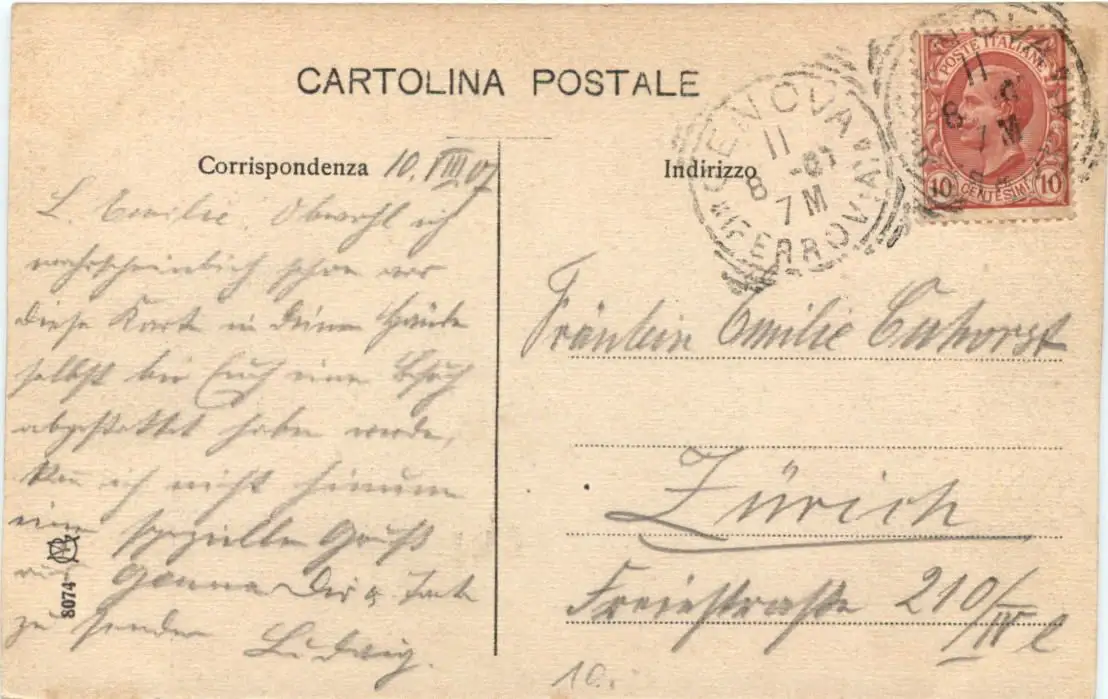 CARTOLINA POSTALE
Corrispondenza 10. VIII 07
L. Emilie. Obwohl ich
wahrscheinlich schon vor
diese Karte in Deinen Hände
selbst bei Euch einen Besuch
abgestattet haben werde,
kann ich nicht
einen speziellen Gruß
aus Genua Dir &
zu senden
Ludwig.
8074
Indirizzo
GENOVA
11
8 -07
7 M
FERROVIA
POSTE ITALIANE
10 CENTESIMI 10
GENOVA
11
8
7 M
Fräulein Emilie
Zürich
Freiestraße 210/IV l
10.